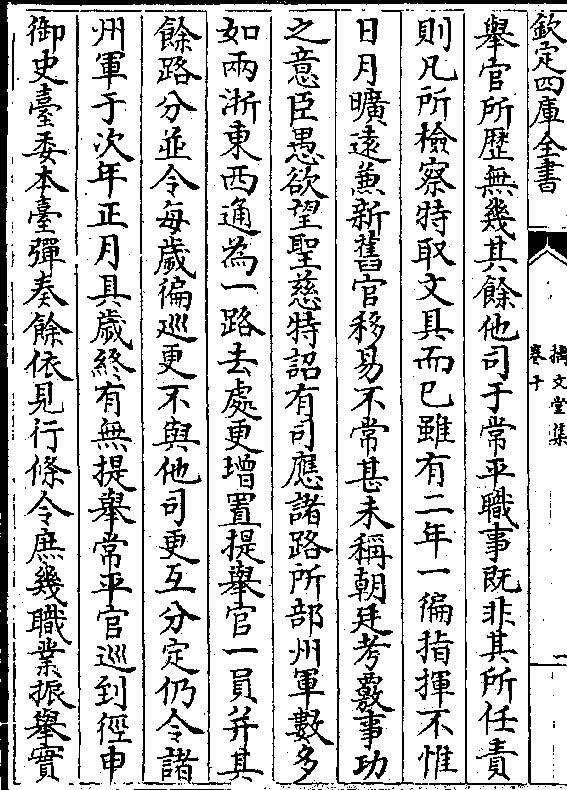 欽定四庫全書
摛文堂集
卷十
舉官所歴無幾其餘他司于常平職事既非其所任責
則凡所檢察特取文具而已雖有二年一徧指揮不惟
日月曠遠兼新舊官移易不常甚未稱朝廷考覈事功
之意臣愚欲望聖慈特詔有司應諸路所部州軍數多
如兩浙東西通為一路去處更增置提舉官一員并其
餘路分並令每歲徧巡更不與他司更互分定仍令諸
州軍于次年正月具歲終有無提舉常平官巡到徑申
御史臺委本臺彈奏餘依見行條令庶幾職業振舉實